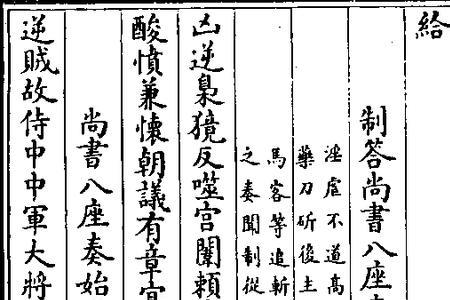 給
制答尚書八座
淫虐不道高
藥刀斫後主
馬客等追斬
之奏聞制從
凶逆梟獍反噬宮闈賴
酸憤兼懷朝議有章宜
尚書八座奏始
逆賊故侍中中軍大將